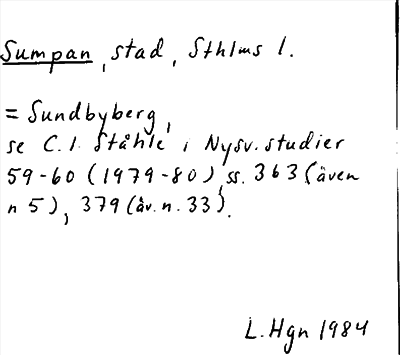 Sumpan, stad, Sthlms l.
= Sundbyberg,
se C.I. Ståhle i Nysv. studier
59-60 (1979-80), ss. 363 (även
n 5), 379 (äv. n. 33).
L. Hgn 1984